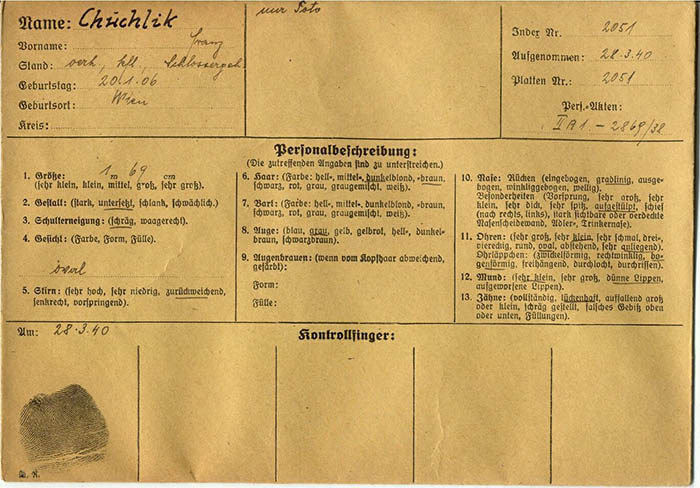 Name: Chuchlik
Vorname: Franz
Stand: verh., kfl., Schlossergeh
Geburtstag: 20.1.06
Geburtsort: Wien
Kreis:
nur Foto
Index Nr. 2051
Aufgenommen: 28.3.40
Platten Nr.: 2051
Pers.-Akten:
II A1 - 2869/38
Personalbeschreibung:
(Die zutreffenden Angaben sind zu unterstreichen.)
1. Größe: 1 m 69 cm
(sehr klein, klein, mittel, groß, sehr groß).
2. Gestalt: (stark, untersetzt, schlank, schwächlich.)
3. Schulterneigung: (schräg, waagerecht).
4. Gesicht: (Farbe, Form, Fülle).
oval
5. Stirn: (sehr hoch, sehr niedrig, zurückweichend,
senkrecht, vorspringend).
6. Haar: (Farbe: hell-, mittel-, dunkelblond, -braun,
schwarz, rot, grau, graugemischt, weiß).
7. Bart: (Farbe: hell-, mittel-, dunkelblond, -braun,
schwarz, rot, grau, graugemischt, weiß).
8. Auge: (blau, grau, gelb, gelbrot, hell-, dunkel-
braun, schwarzbraun).
9. Augenbrauen: (wenn vom Kopfhaar abweichend,
gefärbt):
Form:
Fülle:
10. Nase: Rücken (eingebogen, gradlinig, ausge-
bogen, winkliggebogen, wellig).
Besonderheiten (Vorsprung, sehr groß, sehr
klein, sehr dick, sehr spitz, aufgestülpt, schief
(nach rechts, links), stark sichtbare oder verdeckte
Nasenscheidewand, Adler-, Trinkernase).
11. Ohren: (sehr groß, sehr klein, sehr schmal, drei-,
viereckig, rund, oval, abstehend, sehr anliegend).
Ohrläppchen: (zwickelförmig, rechtwinklig, bo-
genförmig, freihängend, durchlocht, durchrissen).
12. Mund: (sehr klein, sehr groß, dünne Lippen,
aufgeworfene Lippen).
13. Zähne: (vollständig, lückenhaft, auffallend groß
oder klein, schräg gestellt, falsches Gebiß oben
oder unten, Füllungen).
Am: 28.3.40
Kontrollfinger: